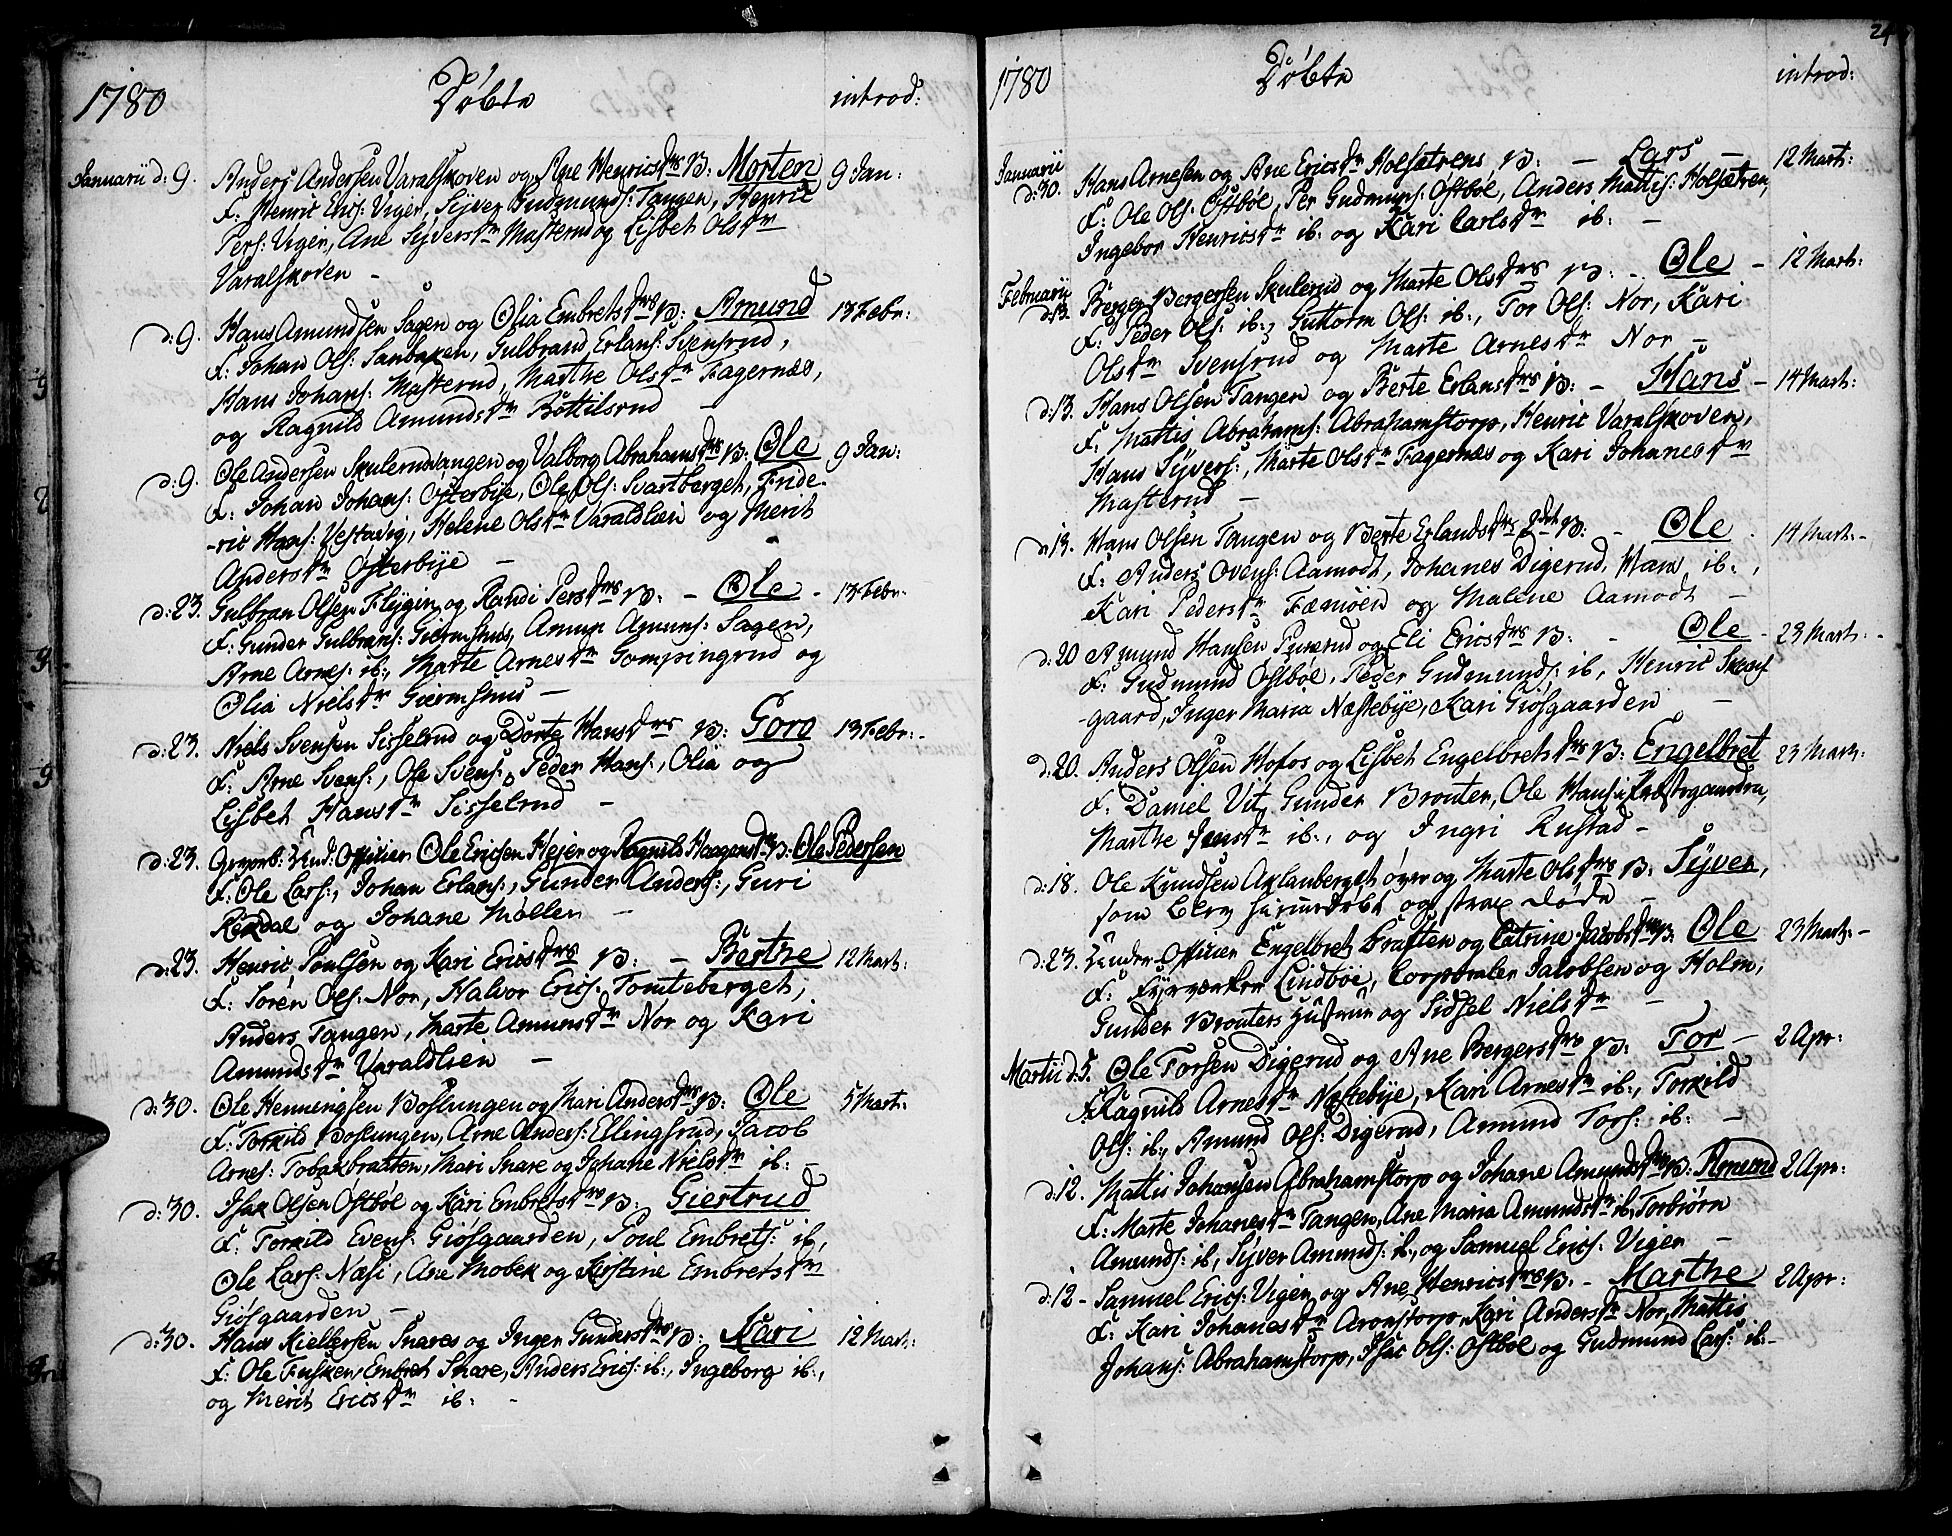 1780 Döbte introd:
Januarii d: 9. Anders Andersen Varalskoven og Ane Henricsdrs B: Morten 9 Jan:
F: Henric Erics: Vigen, Syver Gudmunds: Tangen, Henric
Pers: Vigen, Ane Syversdr Masterud og Lisbet Olsdr
Varalskoven -
d: 9. Hans Amundsen Sagen og Olia Embretsdrs B: Amund 13 Febr:
F: Johan Ols: Sanbaken, Gulbrand Erlans: Svensrud,
Hans Johans: Masterud, Marthe Olsdr Fagernæs,
og Ragnild Amundsdr Bottilsrud -
d: 9. Ole Andersen Skulerudvangen og Valborg Abrahamsdrs B: Ole 9 Jan:
F: Johan Johans: Østerbye, Ole Ols: Svartberget, Fride-
-ric Hans: Vestavig, Helene Olsdr Varaldlien og Merit
Andersdr Østerbye -
d: 23. Gulbran Olsen Flygin og Randi Persdrs B: - Ole - 13 Febr:
F: Gunder Gulbrans: Giermshus, Amun Amuns: Sagen,
Arne Arnes: ib:, Marte Arnesdr Gompingrud og
Olia Nielsdr Giermshus -
d: 23. Niels Svensen Sisselrud og Dorte Hansdrs B: Goro 13 Febr: -
F: Arne Svens:, Ole Svens:, Peder Hans:, Olia og
Lisbet Hansdr Sisselrud -
d: 23. Gevorb: Und: Officier Ole Ericsen Hejer og Ragnild Haagensdrs B: Ole Pedersen
F: Ole Lars:, Johan Erlans:, Gunder Anders:, Guri
Rendal og Johane Møller -
d: 23. Henric Poulsen og Kari Ericsdrs B: - Berthe 12 Mart:
F: Søren Ols: Nor, Halvor Erics: Tomteberget,
Anders Tangen, Marte Amunsdr Nor og Kari
Amundsdr Varaldlien -
d: 30. Ole Henningsen Boslungen og Mari Andersdrs B: Ole 5 Mart:
F: Torkild Boslungen, Arne Anders: Ellingsrud, Jacob
Arnes: Tobakbratten, Mari Snare og Johane Nielsdr ib: -
d: 30. Isak Olsen Østbøl og Kari Embretsdrs B: Giertrud
F: Torkild Evens: Giøsgaarden, Poul Embrets: ib,
Ole Lars: Næsi, Ane Mobek og Kirstine Embretsdr
Giøsgaarden -
d: 30. Hans Kielersen Snares og Inger Gundersdrs B: Kari 12 Mart:
F: Ole Fusken, Embret Snare, Anders Erics: ib:, Ingeborg ib:,
og Merit Ericsdr ib: -
24
1780 Döbte introd:
Januarii
d: 30. Hans Arnesen og Ane Ericsdr Holsætrens B: - Lars - 12 Mart:
F: Ole Ols: Østbøl, Per Gudmuns: Østbøl, Anders Mattis: Holsætren,
Ingebor Henricsdr ib: og Kari Carlsdr ib: -
Februarii
d: 13. Berger Bergersen Skulerud og Marte Olsdrs B: - Ole - 12 Mart:
F: Peder Ols: ib:, Guttorm Ols: ib:, Tor Ols: Nor, Kari
Olsdr Svensrud og Marte Arnesdr Nor -
d: 13. Hans Olsen Tangen og Berte Erlansdrs B: - Hans - 14 Mart:
F: Mattis Abrahams: Abrahamstorp, Henric Varalskoven,
Hans Syvers:, Marte Olsdr Fagernæs og Kari Johanesdr
Masterud -
d: 13. Hans Olsen Tangen og Berte Erlandsdrs 2det B: - Ole 14 Mart: -
F: Anders Ovens: Aamodt, Johanes Digerud, Hans ib:,
Kari Pedersdr Fæmoen og Malene Aamodt -
d: 20 Amund Hansen Punsrud og Eli Ericsdrs B: - Ole - 23 Mart: -
F: Gudmund Østbøl, Peder Gudmunds: ib, Henric Skans
-gaard, Inger Maria Næstebye, Kari Giøsgaarden -
d: 20. Anders Olsen Hofos og Lisbet Engelbretsdrs B: Engelbret 23 Mart:
F: Daniel Vit, Gunder Brouter, Ole Hans: i Præstegaarden,
Marthe Jensdr ib:, og Ingri Rustad -
d: 18. Ole Knudsen Aklanberget øvre og Marte Olsdrs B: Syver,
som blev hiemedøbt og strax døde -
d: 23. Under Officier Engelbret Braften og Catrine Jacobsdrs B: Ole 23 Mart: -
F: Fyrverker Lindboe, Corporaler Jacobsen og Holm,
Gunder Brouters Hustrue og Sidsel Nielsdr -
Martii d: 5. Ole Torsen Digerud og Ane Bergersdrs B: Tor - 2 Apr:
F: Ragnild Arnesdr Næstebye, Kari Arnesdr ib:, Torkild
Ols: ib:, Amund Ols: Digerud, Amund Tors: ib: -
d: 12. Mattis Johansen Abrahamstorp og Johane Amundsdrs B: Amund 2 Apr:
F: Marte Johanesdr Tangen, Ane Maria Amundsdr ib, Torbiørn
Amunds: ib, Syver Amunds: ib:, og Samuel Erics: Vigen -
d: 12 - Samuel Erics: Vigen og Ane Henricsdrs B: - Marthe 2 Apr:
F: Kari Johanesdr Aronstorp, Kari Andersdr Nor, Mattis
Johans: Abrahamstorp, Isac Ols: Østbøl og Gudmund Lars: ib: -